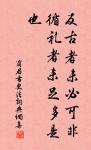 反古者未必可非
循礼者未足多是
也
商君书更法词典网集